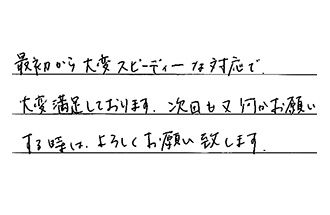 最初から大変スピーディーな対応で、
大変満足しております。次回も又何かお願い
する時は、よろしくお願い致します。